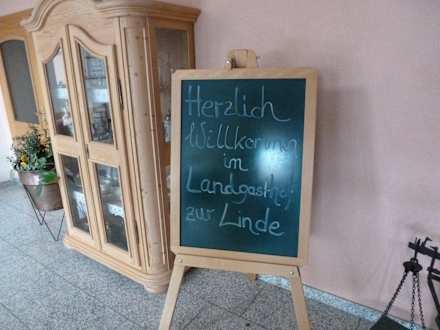 Herzlich
Willkommen
im
Landgasthof
zur Linde